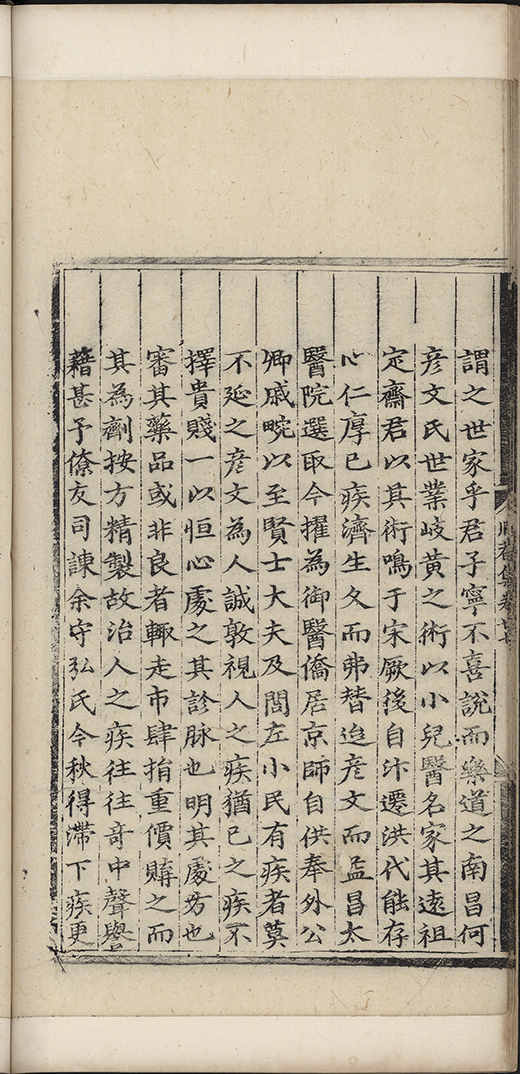 謂之世家乎君子寧不喜說而樂道之南昌何
彦文氏世業岐黃之術以小兒醫名家其遠祖
定齋君以其術鳴于宋厥後自汴遷洪代能存
心仁厚已疾濟生久而弗替迨彦文而益昌太
醫院選取今擢為御醫僑居京師自供奉外公
卿戚畹以至賢士大夫及閭左小民有疾者莫
不延之彦文為人誠敦視人之疾猶已之疾不
擇貴賤一以恒心處之其診脉也明其處方也
審其藥品或非良者輙走市肆捐重價購之而
其為劑按方精製故治人之疾往往奇中聲譽
藉甚予僚友司諫余守弘氏今秋得滯下疾更